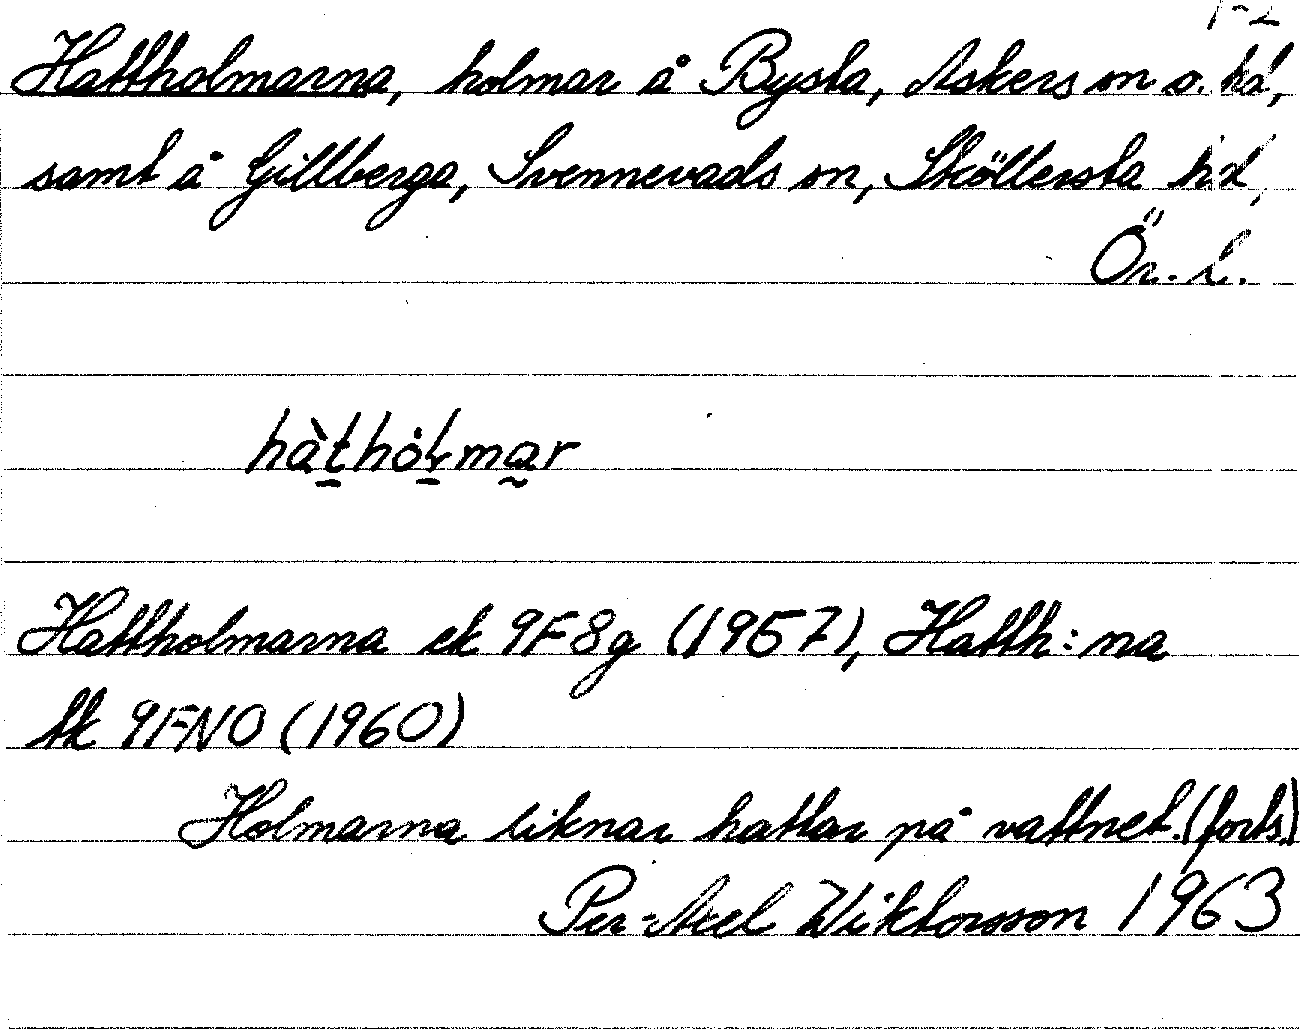 1-2
Hattholmarna, holmar å Bysta, Askers sn o. hd,
samt å Gillberga, Svennevads sn, Sköllersta hd,
Ör. l.
hàthòlmar
Hattholmarna ek 9F8g (1957), Hatth:na
tk 9FNO (1960)
Holmarna liknar hattar på vattnet. (forts.)
Per-Axel Wiktorsson 1963